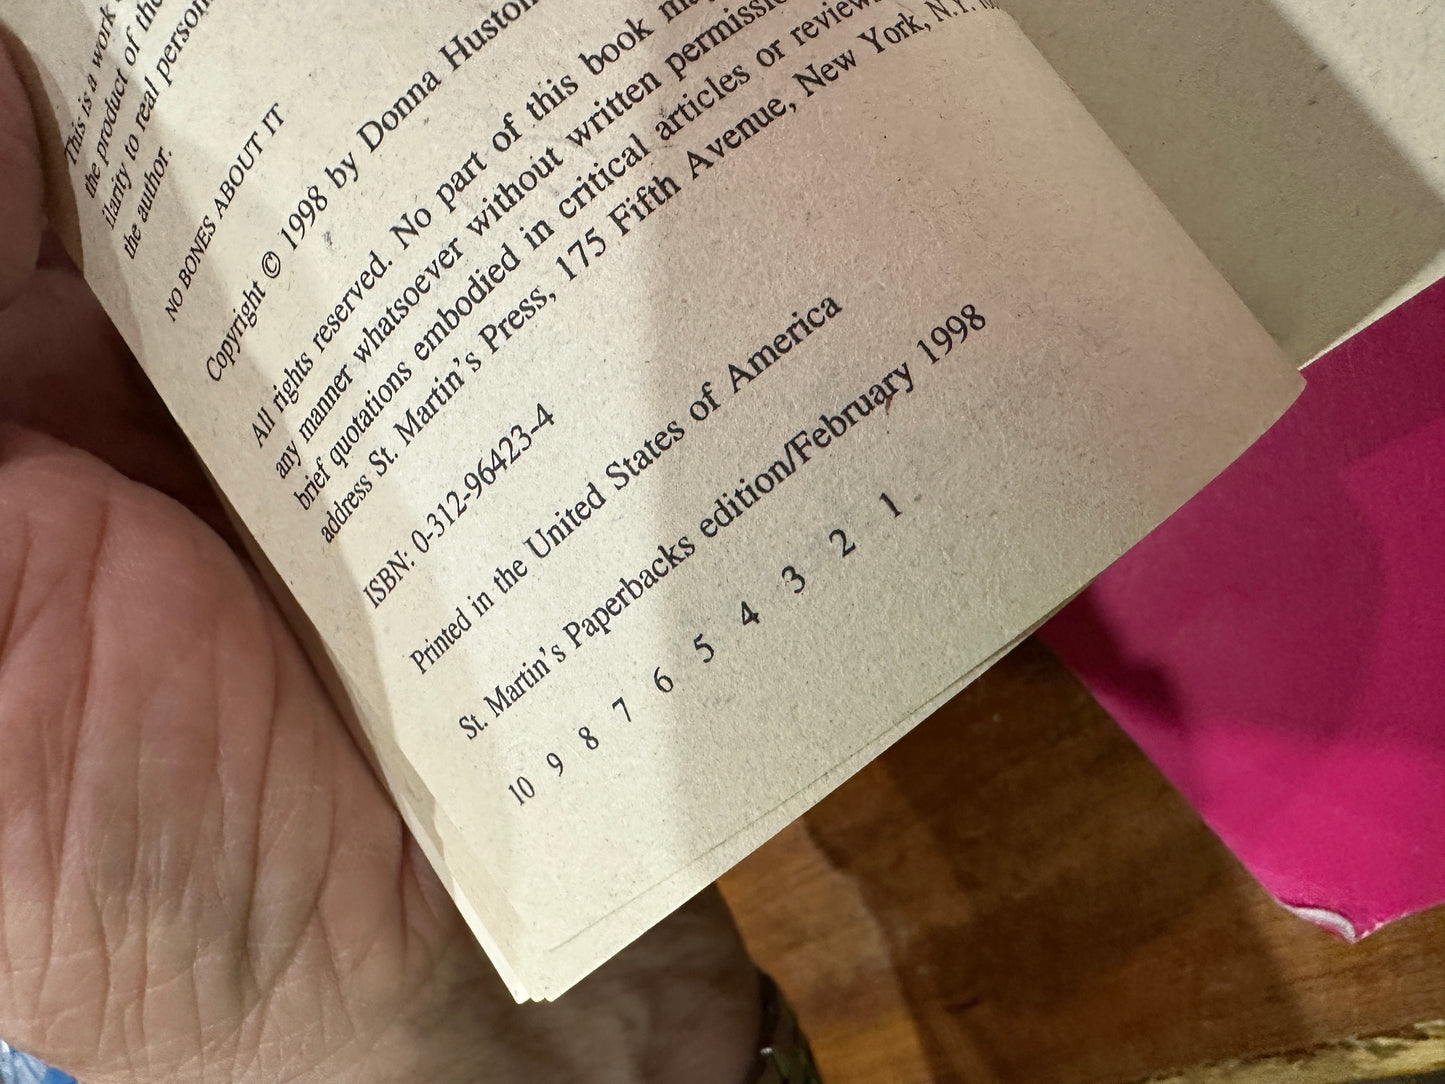 This is a work
the product of the
ilarity to real person
the author.
NO BONES ABOUT IT
Copyright © 1998 by Donna Huston
All rights reserved. No part of this book
any manner whatsoever without written
brief quotations embodied in critical articles or
address St. Martin's Press, 175 Fifth Avenue, New York, N.Y.
ISBN: 0-312-96423-4
Printed in the United States of America
St. Martin's Paperbacks edition/February 1998
10 9 8 7 6 5 4 3 2 1